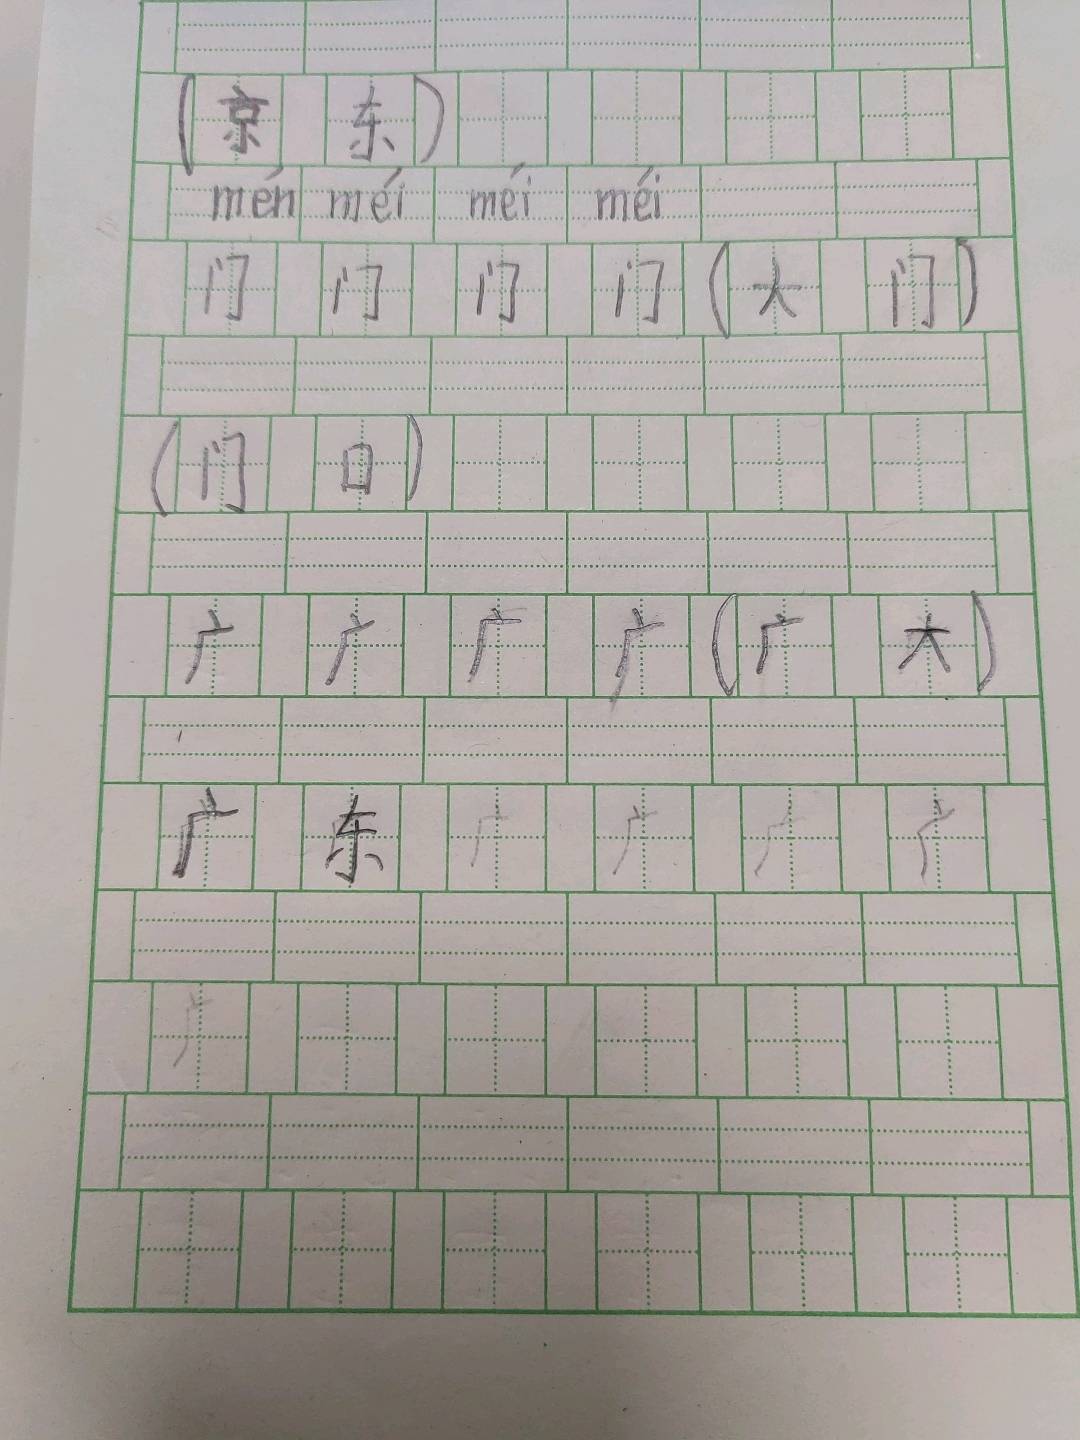 (京东)
mén méi méi méi
门门门门(大门)
(门口)
广广广广(广大)
广东广广广广
广